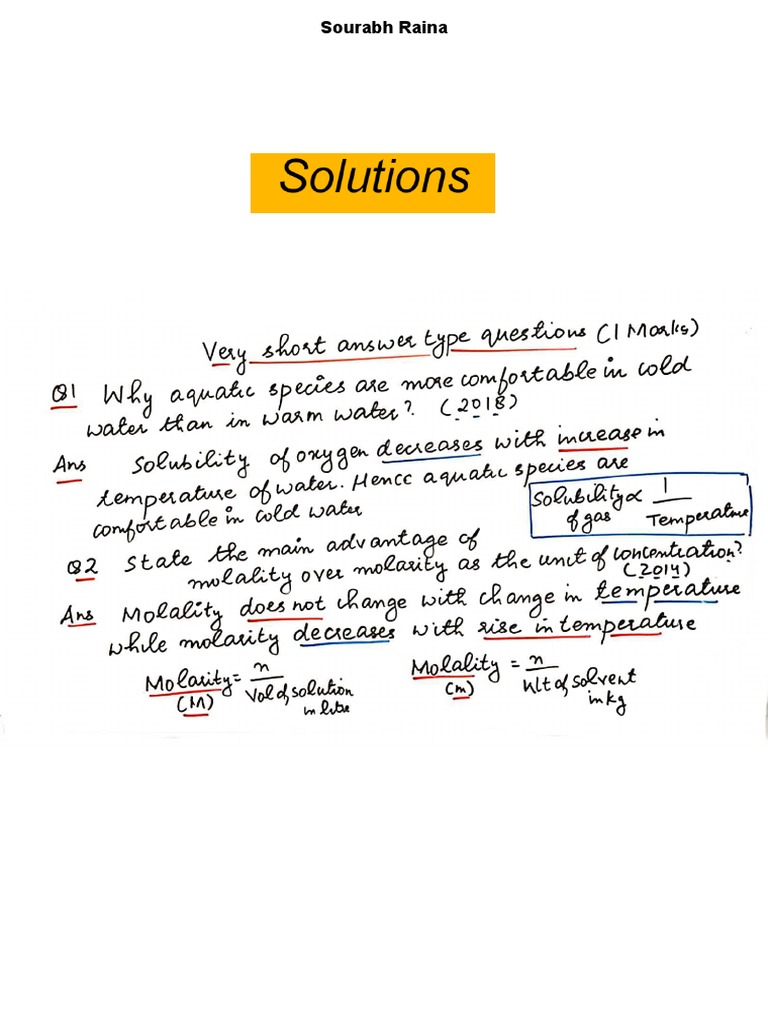 Sourabh Raina
Solutions
Very short answer type questions (1 Marks)
Q1 Why aquatic species are more comfortable in cold
water than in warm water? (2018)
Ans Solubility of oxygen decreases with increase in
temperature of water. Hence aquatic species are
comfortable in cold water
Solubility of gas ∝ 1 / Temperature
Q2 State the main advantage of
molality over molarity as the unit of concentration?
(2014)
Ans Molality does not change with change in temperature
while molarity decreases with rise in temperature
Molarity = n / Vol of solution in litre
(M)
Molality = n / Wt of solvent in kg
(m)